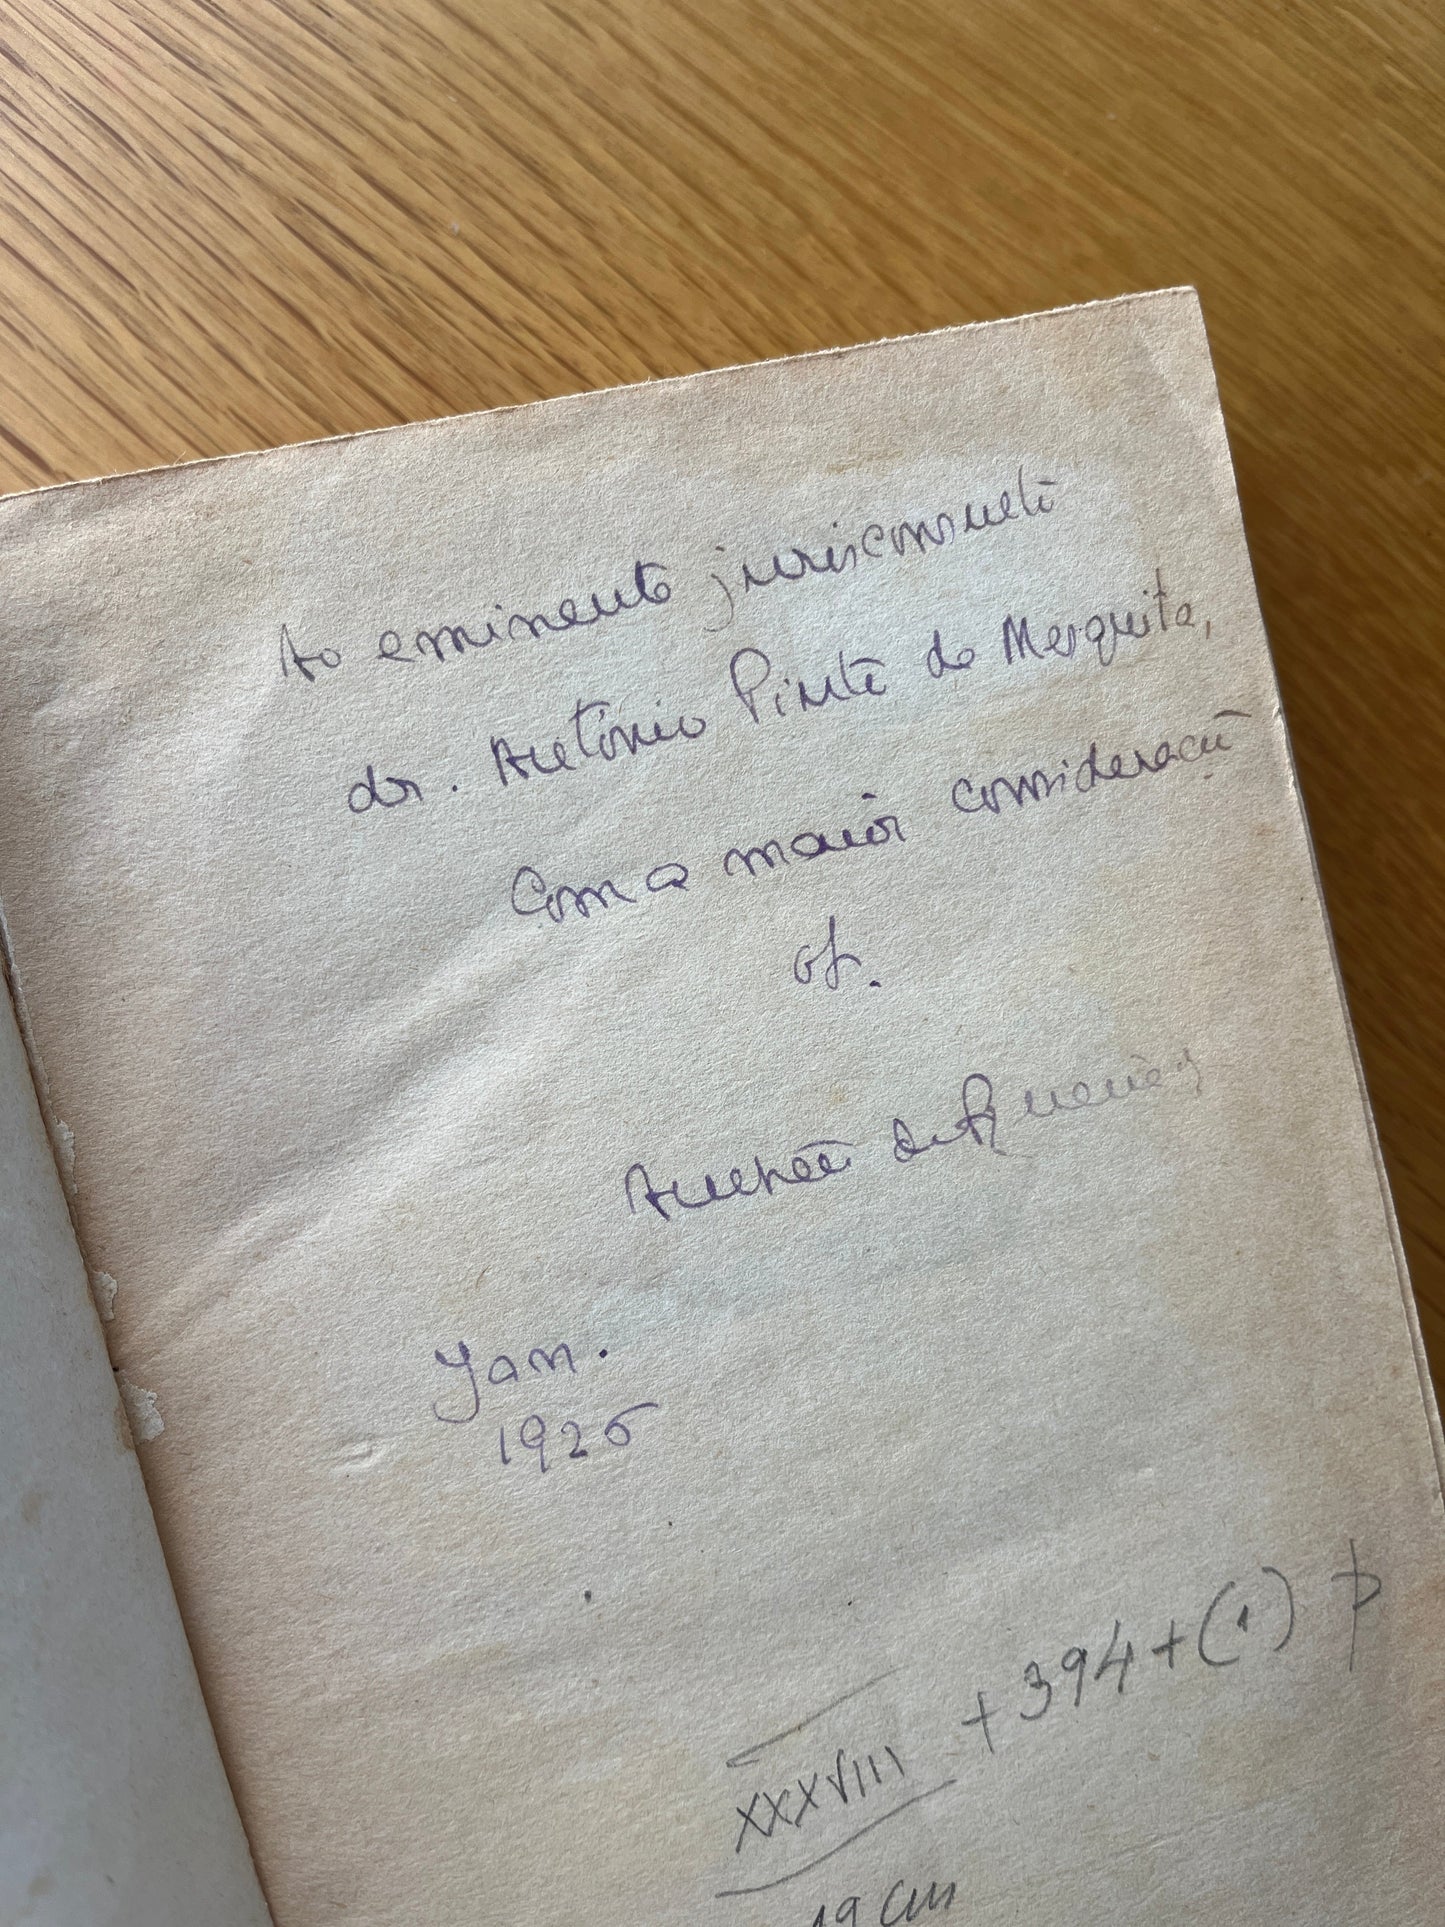 Ao eminente jurisconsulto
dr. António Pinto de Mesquita,
Com a maior consideração
of.
Jan.
1926
XXXVIII + 394 + (1) p
19 cm